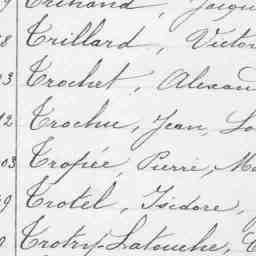 Trillard, Victor
Trochet, Alexan
Trochu, Jean, Lo
03 Tropée, Pierre, Ma
Trotel, Isidore,
Trotry-Latouche,